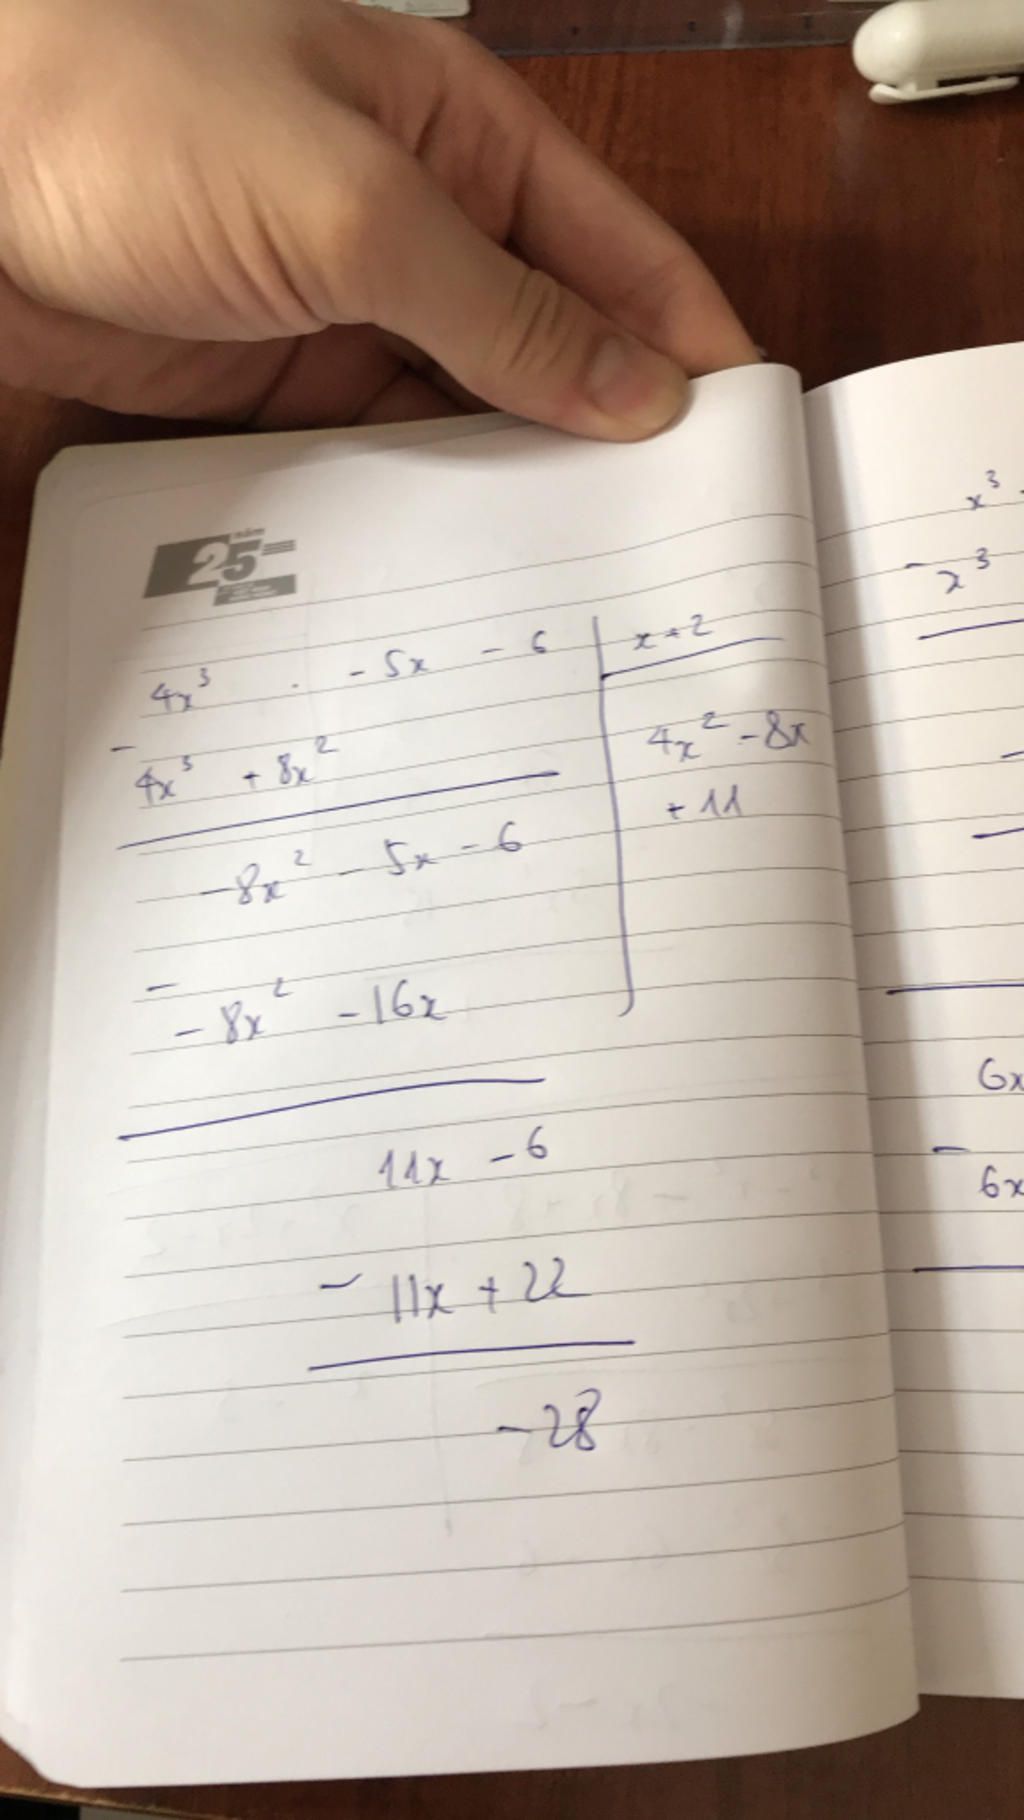 năm
25
4x³ · - 5x - 6
x+2
-
4x³ + 8x²
4x² - 8x
+ 11
-8x² - 5x - 6
-
- 8x² - 16x
11x - 6
- 11x + 22
-28
x³ -
- x³
6x
-
6x